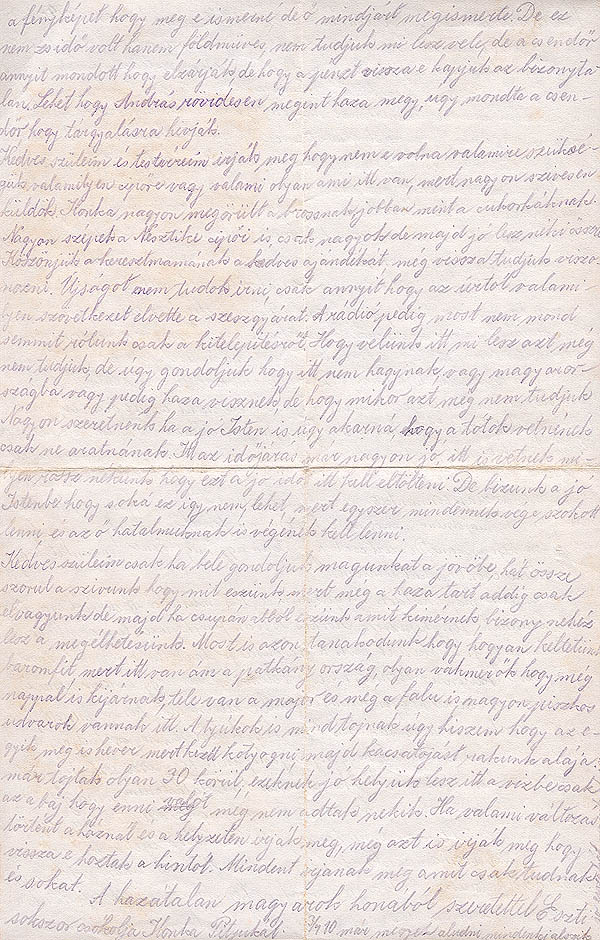 a fényképet hogy meg e ismerné de ő mindjárt megismerte. De ez
nem zsidó volt hanem földmüves, nem tudjuk mi lesz vele, de a csendőr
annyit mondott hogy elzárják, de hogy a pénzt vissza e kapjuk az bizonyta-
lan. Lehet hogy András rövidesen megint haza megy, ugy mondta a csen-
dőr hogy tárgyalásra hivják.
Kedves szüleim és testvéreim irják meg hogy nem e volna valamire szüksé-
gük, valamilyen cipőre vagy valami olyan ami itt van, mert nagyon szivesen
küldök. Ilonka nagyon megörült a brossnak jobban mint a cukorkáknak.
Nagyon szépek a Nesztike cipői is, csak nagyok de majd jó lesz neki ősszel
Köszönjük a keresztmamának a kedves ajándékát, meg vissza tudjuk viszo-
nozni. Ujságot nem tudok irni csak annyit hogy az úrtól valami-
lyen szövetkezet elvette a szeszgyárat. A rádió pedig most nem mond
semmit rólunk csak a kitelepitésről. Hogy velünk itt mi lesz azt még
nem tudjuk, de úgy gondoljuk hogy itt nem hagynak vagy magyaror-
szágba vagy pedig haza visznek, de hogy mikor azt még nem tudjuk
Nagyon szeretnénk ha a jó Isten is úgy akarná, hogy a tótok vetnének
csak ne aratnának. Itt az időjárás már nagyon jó, itt is vetnek mi-
lyen rossz nékünk hogy ezt a jó időt itt kell eltölteni. De bizunk a jó
Istenbe hogy soká ez igy nem lehet, mert egyszer mindennek vége szokott
lenni és az ő hatalmuknak is végének kell lenni.
Kedves szüleim csak ha bele gondoljuk magunkat a jövőbe, hát össze
szorul a szivünk hogy mit eszünk mert még a haza tart addig csak
elvagyunk de majd ha csupán abból eszünk amit kimérnek bizony nehéz
lesz a megélhetésünk. Most is azon tanakodunk hogy hogyan keltetünk
baromfit mert itt van ám a patkány ország, olyan vakmerők hogy még
nappal is kijárnak, tele van a major és még a falu is nagyon piszkos
udvarok vannak itt. A tyúkok is mind tojnak ugy hiszem hogy az e-
gyik meg is hever mert kezd kotyogni majd kacsatojást rakunk alája
már tojtak olyan 30 körül, ezeknek jó helyük lesz itt a vizbe csak
az a baj hogy enni valót még nem adtak nekik. Ha valami változás
történt a háznál és a helyzeten irják meg, még azt is irják meg hogy
vissza e hozták a hintót. Mindent irjanak meg amit csak tudnak
és sokat. A hazátalan magyarok honából szeretettel Eszti
sokszor csókolja Ilonka Pityukát. 3/4 10 már megyek aludni mindenki alszik